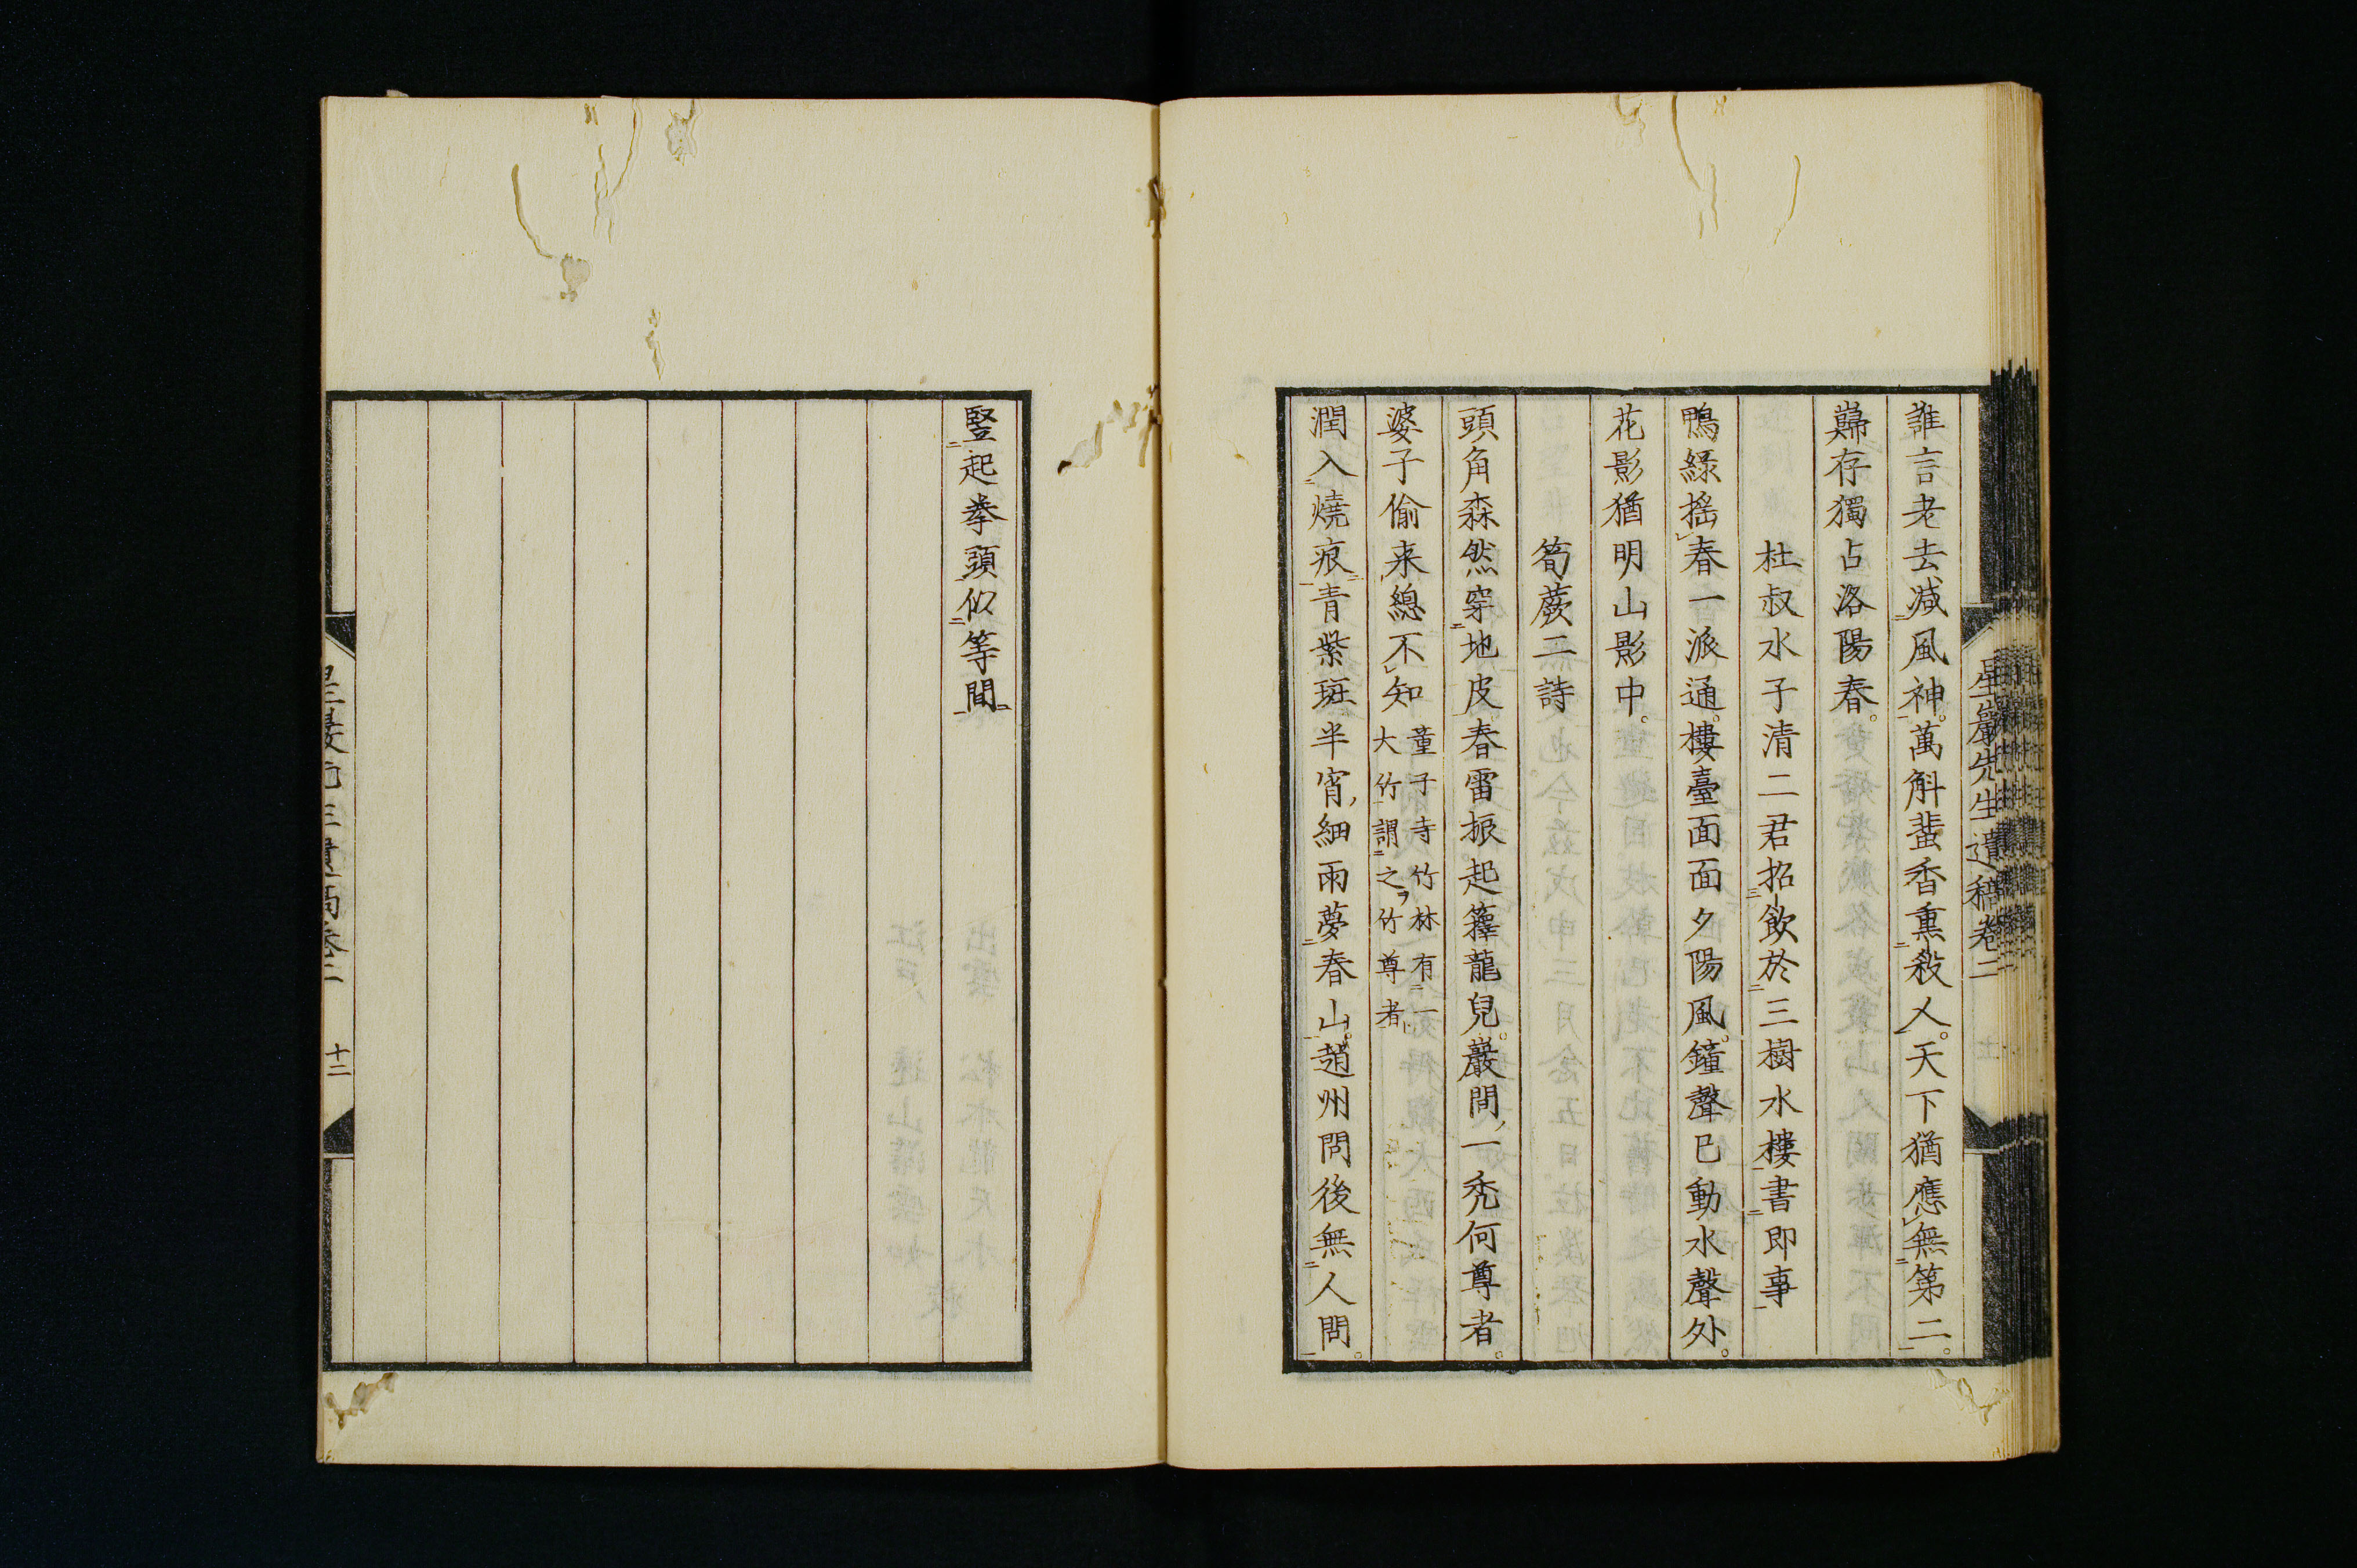 星巖先生遺稿卷二
誰言老去减風神。萬斛蜚香熏殺人。天下猶應無第二。
巋存獨占洛陽春。
杜叔水子清二君招飲於三樹水樓書即事
鴨綠搖春一派通。樓臺面面夕陽風。鐘聲已動水聲外。
花影猶明山影中。
筍蕨二詩
頭角森然穿地皮春雷振起籜龍兒。巖間一禿何尊者。
婆子偷来總不知
童子寺竹林有一
大竹謂之竹尊者
潤入燒痕青紫斑半宵細雨夢春山。趙州問後無人問。
豎起拳頭似等間
十二